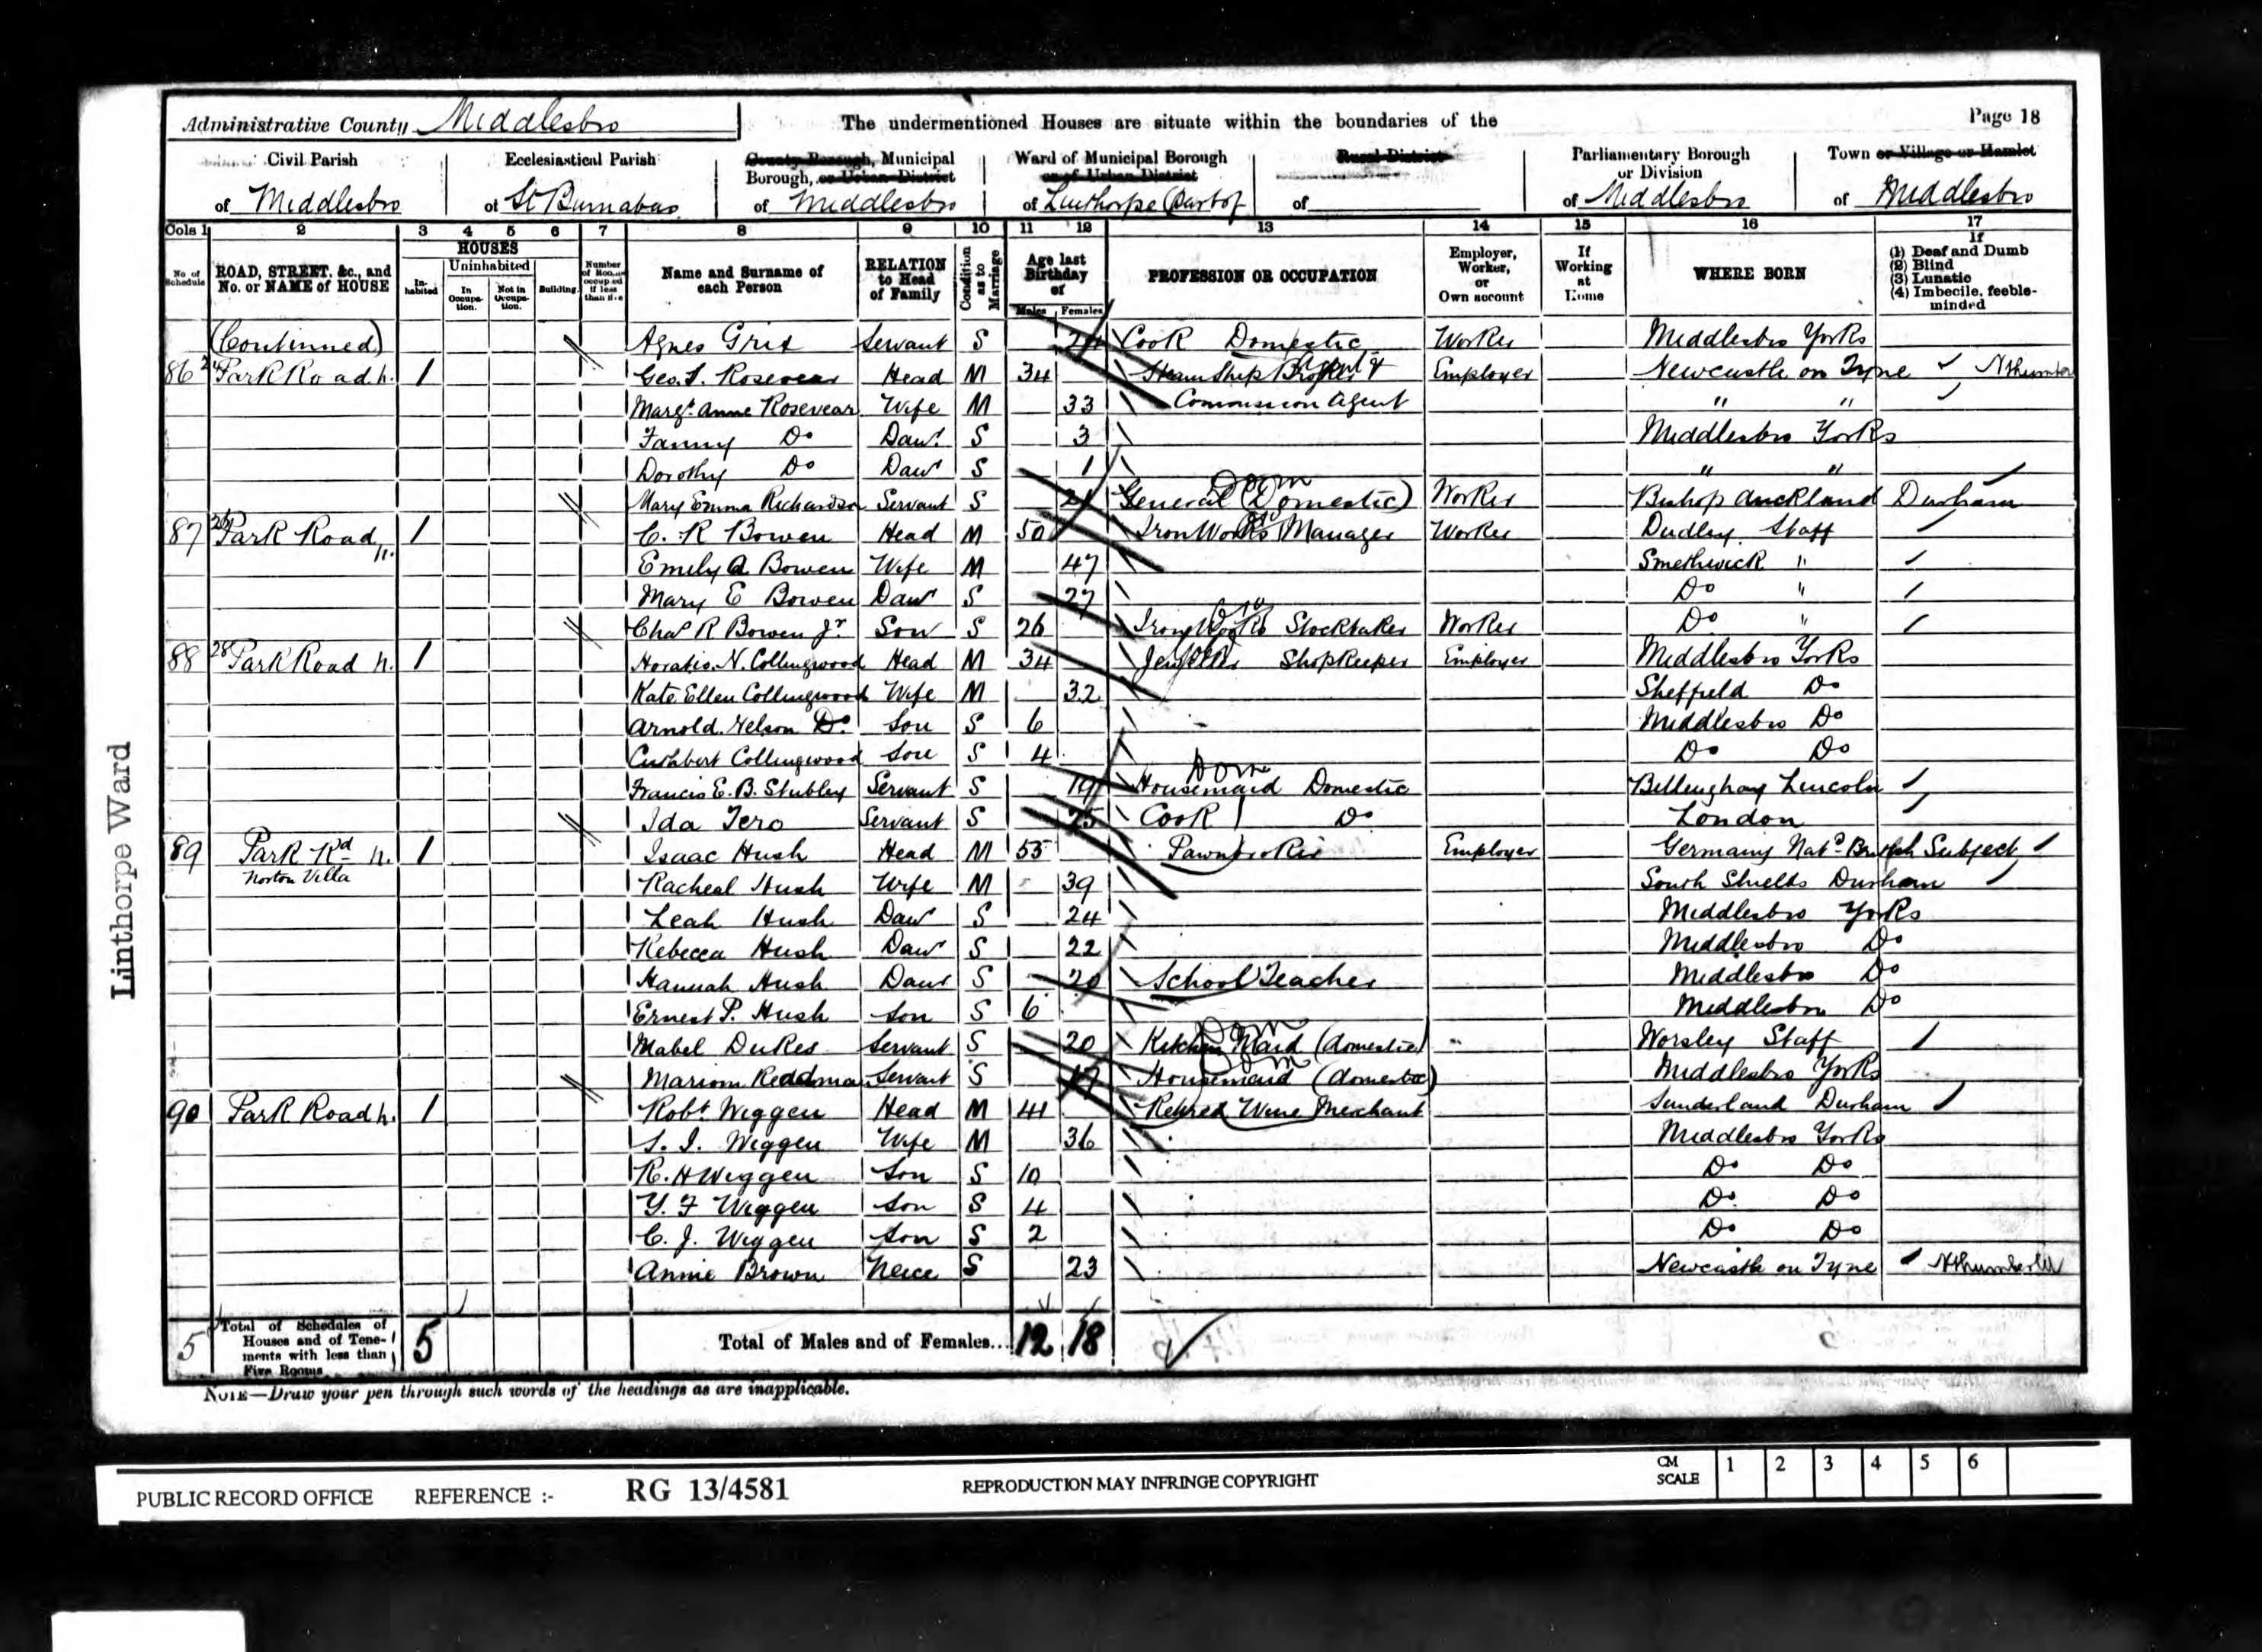 Administrative County Middlesbro
The undermentioned Houses are situate within the boundaries of the
Page 18
Civil Parish
of Middlesbro
Ecclesiastical Parish
of St Barnabas
County Borough, Municipal
Borough, or Urban District
of Middlesbro
Ward of Municipal Borough
or of Urban District
of Linthorpe (Part of
Rural District
of
Parliamentary Borough
or Division
of Middlesbro
Town or Village or Hamlet
of Middlesbro
Cols 1 2 3 4 5 6 7 8 9 10 11 12 13 14 15 16 17
No of Schedule
ROAD, STREET, &c., and No. or NAME of HOUSE
HOUSES
In-habited
Uninhabited
In Occupa-tion.
Not in Occupa-tion.
Building.
Number of Rooms occupied if less than five
Name and Surname of each Person
RELATION to Head of Family
Condition as to Marriage
Age last Birthday of
Males Females
PROFESSION OR OCCUPATION
Employer, Worker, or Own account
If Working at Home
WHERE BORN
If
(1) Deaf and Dumb
(2) Blind
(3) Lunatic
(4) Imbecile, feeble-minded
(Continued) Agnes Servant S 24 Cook Domestic Worker Middlesbro Yorks
86 24 Park Road N. 1 Geo. S. Rosevear Head M 34 Steam Ship Broker & Employer Newcastle on Tyne
Margt. Anne Rosevear Wife M 33 Commission Agent " "
Fanny Do Daur. S 3 Middlesbro Yorks
Dorothy Do Daur S 1 " "
Mary Emma Richardson Servant S 21 General (Domestic) Dom Worker Bishop Auckland Durham
87 26 Park Road N. 1 C. R Bowen Head M 50 Iron Works Manager Worker Dudley. Staff
Emily A Bowen Wife M 47 Smethwick "
Mary E Bowen Daur S 27 Do "
Chas R Bowen Jr. Son S 26 Iron Works Stocktaker Worker Do "
88 28 Park Road N. 1 Horatio. N. Collingwood Head M 34 Jeweller Shopkeeper Employer Middlesbro Yorks
Kate Ellen Collingwood Wife M 32 Sheffield Do
Arnold. Nelson Do. Son S 6 Middlesbro Do
Cuthbert Collingwood Son S 4 Do Do
Francis E. B. Stubley Servant S 19 Housemaid Domestic Dom Billinghay Lincoln
Ida Tero Servant S 25 Cook Do London
89 Park Rd N. 1 Isaac Hush Head M 55 Pawnbroker Employer Germany Natd. British Subject
Norton Villa Racheal Hush Wife M 39 South Shields Durham
Leah Hush Daur S 24 Middlesbro Yorks
Rebecca Hush Daur S 22 Middlesbro Do
Hannah Hush Daur S 20 School Teacher Middlesbro Do
Ernest P. Hush Son S 6 Middlesbro Do
Mabel Dukes Servant S 20 Kitchen Maid (domestic) Dom Worsley Staff
Servant S 17 Housemaid (domestic) Dom Middlesbro Yorks
90 Park Road N. 1 Robt Wiggen Head M 41 Retired Wine Merchant Sunderland Durham
S. I. Wiggen Wife M 36 Middlesbro Yorks
R. H Wiggen Son S 10 Do Do
Y. F Wiggen Son S 4 Do. Do
C. J. Wiggen Son S 2 Do Do
Annie Brown Neice S 23 Newcastle on Tyne
5 Total of Schedules of Houses and of Tene-ments with less than Five Rooms 5
Total of Males and of Females... 12 18
NOTE—Draw your pen through such words of the headings as are inapplicable.
Linthorpe Ward
PUBLIC RECORD OFFICE REFERENCE :- RG 13/4581 REPRODUCTION MAY INFRINGE COPYRIGHT
CM SCALE 1 2 3 4 5 6